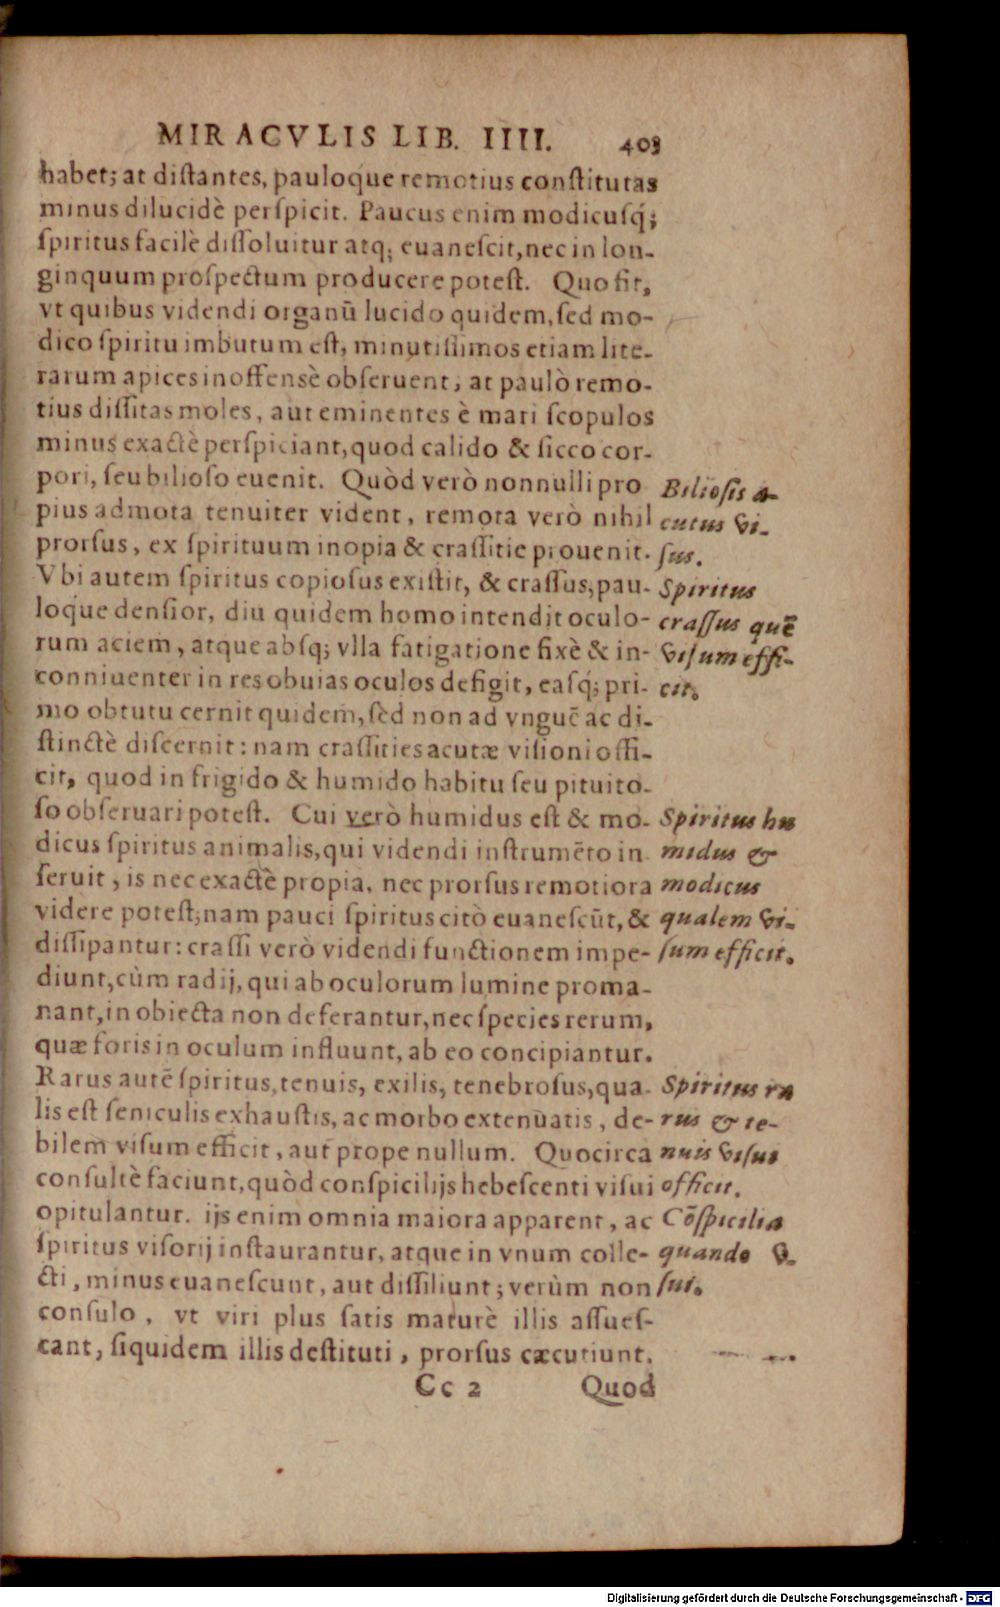 MIRACVLIS LIB. IIII. 403
habet; at distantes, pauloque remotius constitutas
minus dilucidè perspicit. Paucus enim modicusq́;
spiritus facilè dissoluitur atq; euanescit, nec in lon-
ginquum prospectum producere potest. Quo fit,
vt quibus videndi organū lucido quidem, sed mo-
dico spiritu imbutum est, minutissimos etiam lite-
rarum apices inoffensè obseruent, at paulò remo-
tius dissitas moles, aut eminentes è mari scopulos
minus exactè perspiciant, quod calido & sicco cor-
pori, seu bilioso euenit. Quòd verò nonnulli pro
pius admota tenuiter vident, remota verò nihil
prorsus, ex spirituum inopia & crassitie prouenit.
Vbi autem spiritus copiosus existit, & crassus, pau-
loque densior, diu quidem homo intendit oculo-
rum aciem, atque absq; vlla fatigatione fixè & in-
conniuenter in res obuias oculos defigit, easq́; pri-
mo obtutu cernit quidem, sed non ad vnguē ac di-
stinctè discernit: nam crassities acutæ visioni offi-
cit, quod in frigido & humido habitu seu pituito-
so obseruari potest. Cui verò humidus est & mo-
dicus spiritus animalis, qui videndi instrumēto in
seruit, is nec exactè propia, nec prorsus remotiora
videre potest; nam pauci spiritus citò euanescūt, &
dissipantur: crassi verò videndi functionem impe-
diunt, cùm radij, qui ab oculorum lumine proma-
nant, in obiecta non deferantur, nec species rerum,
quæ foris in oculum influunt, ab eo concipiantur.
Rarus autē spiritus, tenuis, exilis, tenebrosus, qua-
lis est seniculis exhaustis, ac morbo extenuatis, de-
bilem visum efficit, aut prope nullum. Quocirca
consultè faciunt, quòd conspicilijs hebescenti visui
opitulantur. ijs enim omnia maiora apparent, ac
spiritus visorij instaurantur, atque in vnum colle-
cti, minus euanescunt, aut dissiliunt; verùm non
consulo, vt viri plus satis maturè illis assues-
cant, siquidem illis destituti, prorsus cæcutiunt.
Cc 2 Quod
Biliosis a-
cutus vi-
sus.
Spiritus
crassus quē
visum effi-
cit.
Spiritus hu
midus &
modicus
qualem vi-
sum efficit.
Spiritus ra
rus & te-
nuis visui
officit.
Cōspicilia
quando v-
sui.
Digitalisierung gefördert durch die Deutsche Forschungsgemeinschaft - DFG